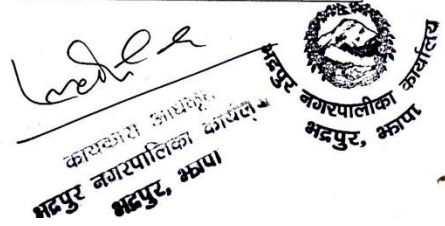 कार्यकारी अधिकृत
भद्रपुर नगरपालिका कार्यालय
भद्रपुर, झापा
भद्रपुर नगरपालीका कार्यालय
भद्रपुर, झापा